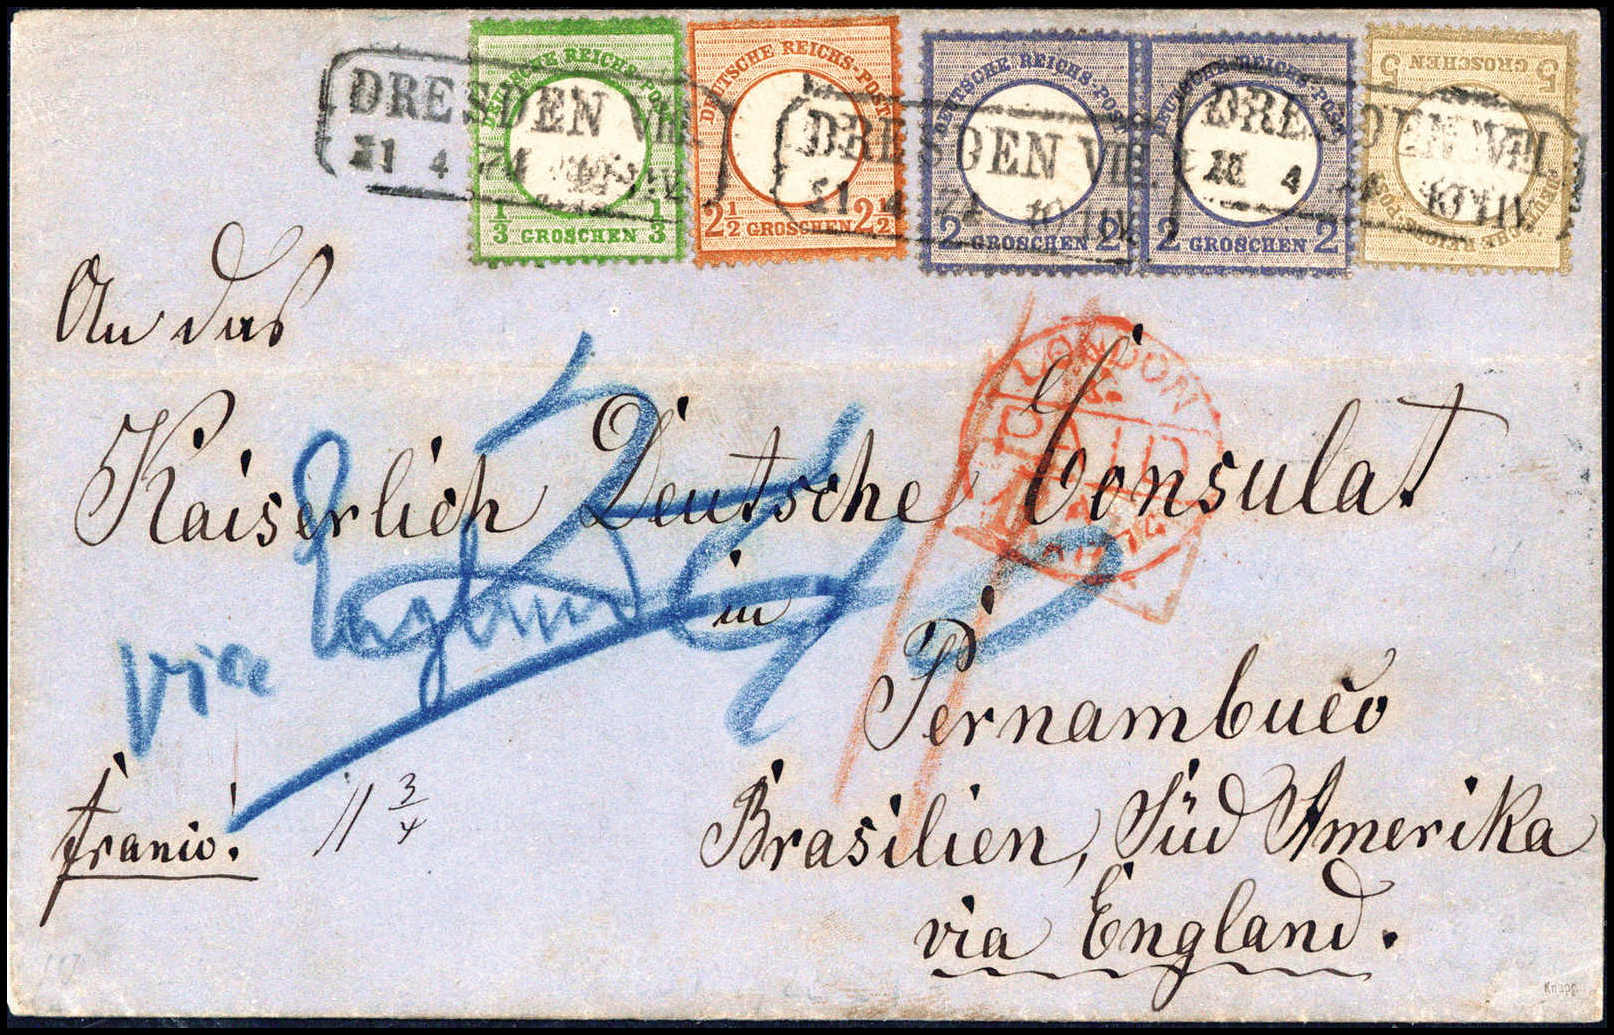 DEUTSCHE REICHS-POST
1/3 GROSCHEN 1/3
DEUTSCHE REICHS-POST
2 1/2 GROSCHEN 2 1/2
DEUTSCHE REICHS-POST
2 GROSCHEN 2
DEUTSCHE REICHS-POST
2 GROSCHEN 2
DEUTSCHE REICHS-POST
5 GROSCHEN 5
DRESDEN VII.
21 4 74
DRESDEN VII.
21 4 74 10-11V.
DRESDEN VII.
4 10-11V.
An das
Kaiserlich Deutsche Consulat
in
Pernambuco
Brasilien, Süd Amerika
via England.
LONDON
PAID
via England
franco.
11 3/4
Knapp